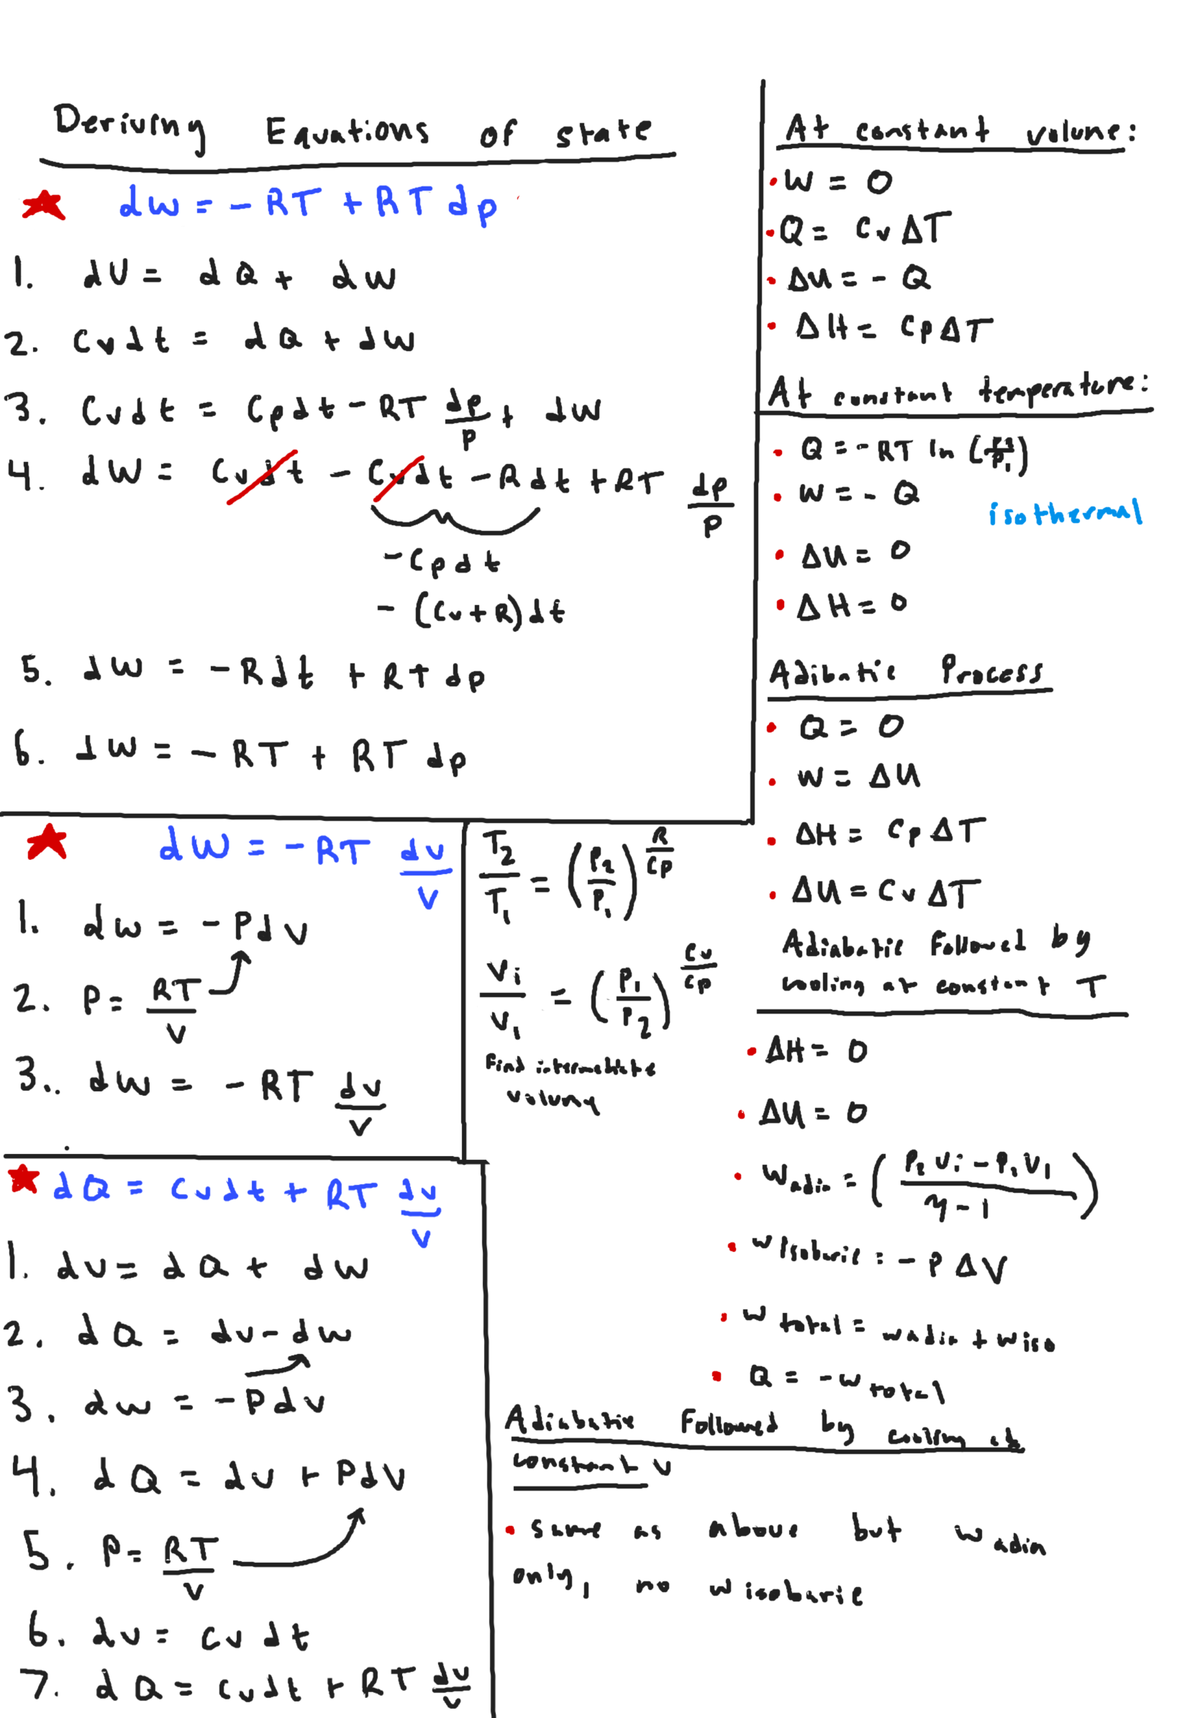 Deriving Equations of state
dw = - RT + RT dp
1. dU = dQ + dw
2. Cvdt = dQ + dw
3. Cvdt = Cpdt - RT dp/p + dw
4. dW = Cvdt - Cvdt - Rdt + RT dp/p
- Cpdt
- (Cv+R)dt
5. dw = - Rdt + RT dp
6. dw = - RT + RT dp
dW = - RT dv/v
1. dw = - Pdv
2. P = RT/v
3.. dw = - RT dv/v
dQ = Cvdt + RT dv/v
1. dv = dQ + dw
2. dQ = dv - dw
3. dw = - Pdv
4. dQ = dv + PdV
5. P = RT/v
6. dv = cvdt
7. dQ = Cvdt + RT dv/v
T2/T1 = (P2/P1)^R/Cp
Vi/V1 = (P1/P2)^Cv/Cp
Find intermediate
volume
At constant volume:
• W = 0
• Q = CvΔT
• ΔU = - Q
• ΔH = CpΔT
At constant temperature:
• Q = - RT ln (P2/P1)
• W = - Q
isothermal
• ΔU = 0
• ΔH = 0
Adibatic Process
• Q = 0
• W = ΔU
• ΔH = CpΔT
• ΔU = CvΔT
Adiabatic Followed by
cooling at constant T
• ΔH = 0
• ΔU = 0
• Wadia = (P2Vi - P1V1/η - 1)
• W isobaric = - P ΔV
• W total = wadia + wiso
• Q = - w total
Adiabatic Followed by cooling at
constant V
• same as above but w adia
only, no w isobaric